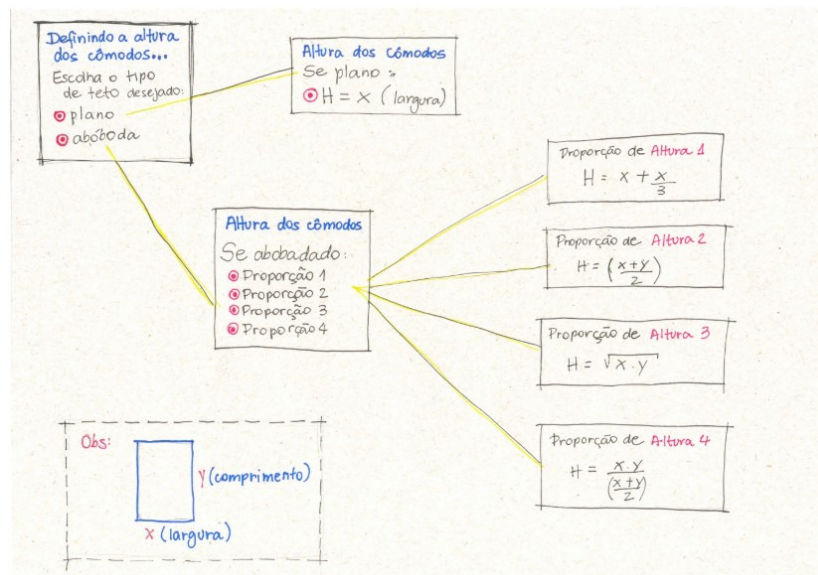 Definindo a altura
dos cômodos...
Escolha o tipo
de teto desejado:
plano
abóboda
Altura dos cômodos
Se plano:
H = x (largura)
Altura dos cômodos
Se abobadado:
Proporção 1
Proporção 2
Proporção 3
Proporção 4
Proporção de Altura 1
H = x + x/3
Proporção de Altura 2
H = (x+y/2)
Proporção de Altura 3
H = √x.y
Proporção de Altura 4
H = x.y/(x+y/2)
Obs:
y (comprimento)
x (largura)